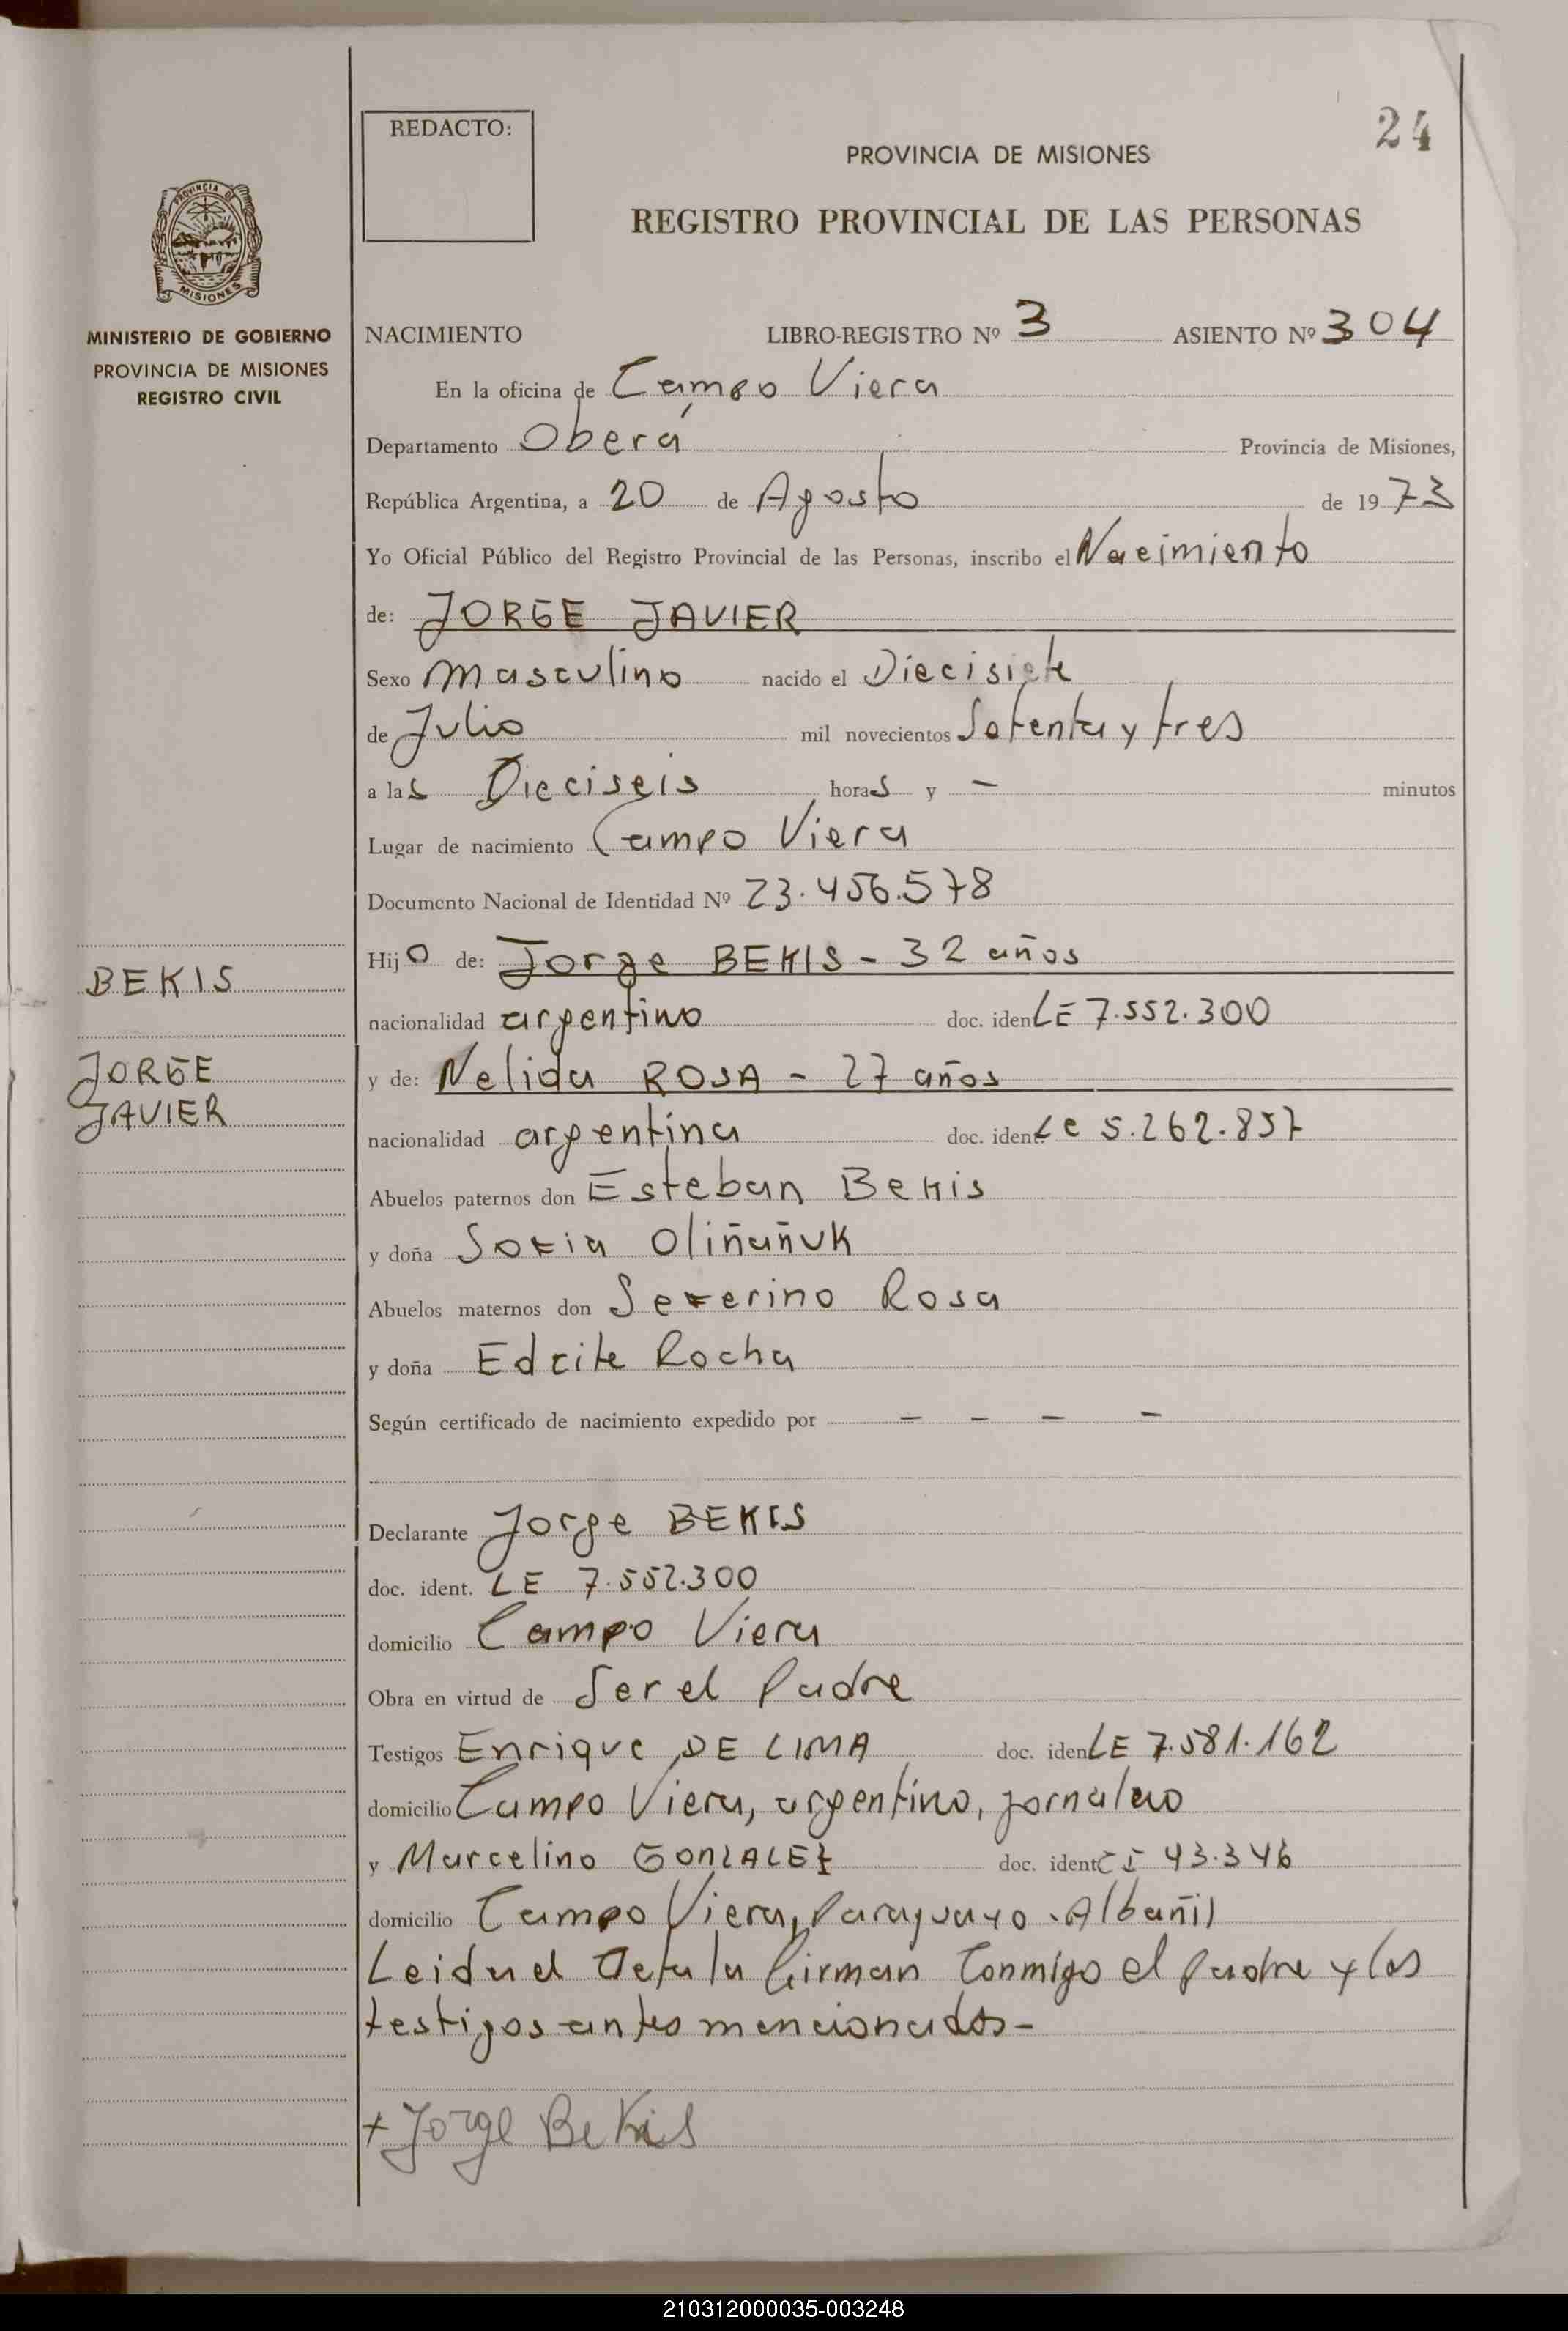 24
REDACTO:
PROVINCIA DE MISIONES
REGISTRO PROVINCIAL DE LAS PERSONAS
PROVINCIA DE
MISIONES
MINISTERIO DE GOBIERNO
PROVINCIA DE MISIONES
REGISTRO CIVIL
NACIMIENTO LIBRO-REGISTRO Nº 3 ASIENTO Nº 304
En la oficina de Campo Viera
Departamento Oberá Provincia de Misiones,
República Argentina, a 20 de Agosto de 1973
Yo Oficial Público del Registro Provincial de las Personas, inscribo el Nacimiento
de: JORGE JAVIER
Sexo Masculino nacido el Diecisiete
de Julio mil novecientos Setenta y tres
a las Dieciseis horas y - minutos
Lugar de nacimiento Campo Viera
Documento Nacional de Identidad Nº 23.456.578
Hijo de: Jorge BEKIS - 32 años
BEKIS
nacionalidad argentino doc. iden LE 7.552.300
JORGE
JAVIER
y de: Nelida ROSA - 27 años
nacionalidad argentina doc. ident. Lc 5.262.857
Abuelos paternos don Esteban Bekis
y doña Sofia Oliñañuk
Abuelos maternos don Severino Rosa
y doña Rocha
Según certificado de nacimiento expedido por - - - -
Declarante Jorge BEKIS
doc. ident. LE 7.552.300
domicilio Campo Viera
Obra en virtud de Ser el Padre
Testigos Enrique DE LIMA doc. iden LE 7.581.162
domicilio Campo Viera, argentino, jornalero
y Marcelino GONZALEZ doc. ident CI 43.346
domicilio Campo Viera, Paraguayo. Albañil
Leida el Acta la Firman Conmigo el Padre y los
testigos antes mencionados-
+ Jorge Bekis
210312000035-003248